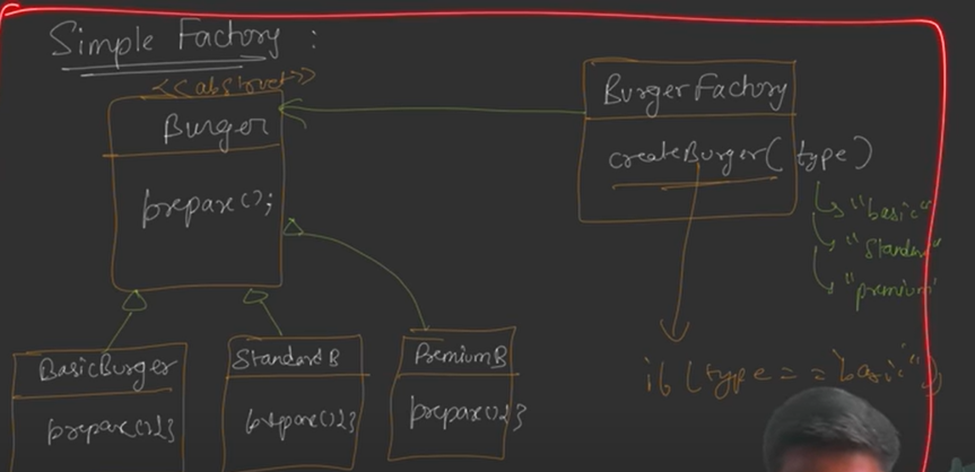 Simple Factory :
<<abstract>>
Burger
prepare();
BurgerFactory
createBurger( type)
"basic"
"Standard"
"premium"
BasicBurger
prepare(){}
StandardB
prepare(){}
PremiumB
prepare(){}
if (type == "basic")